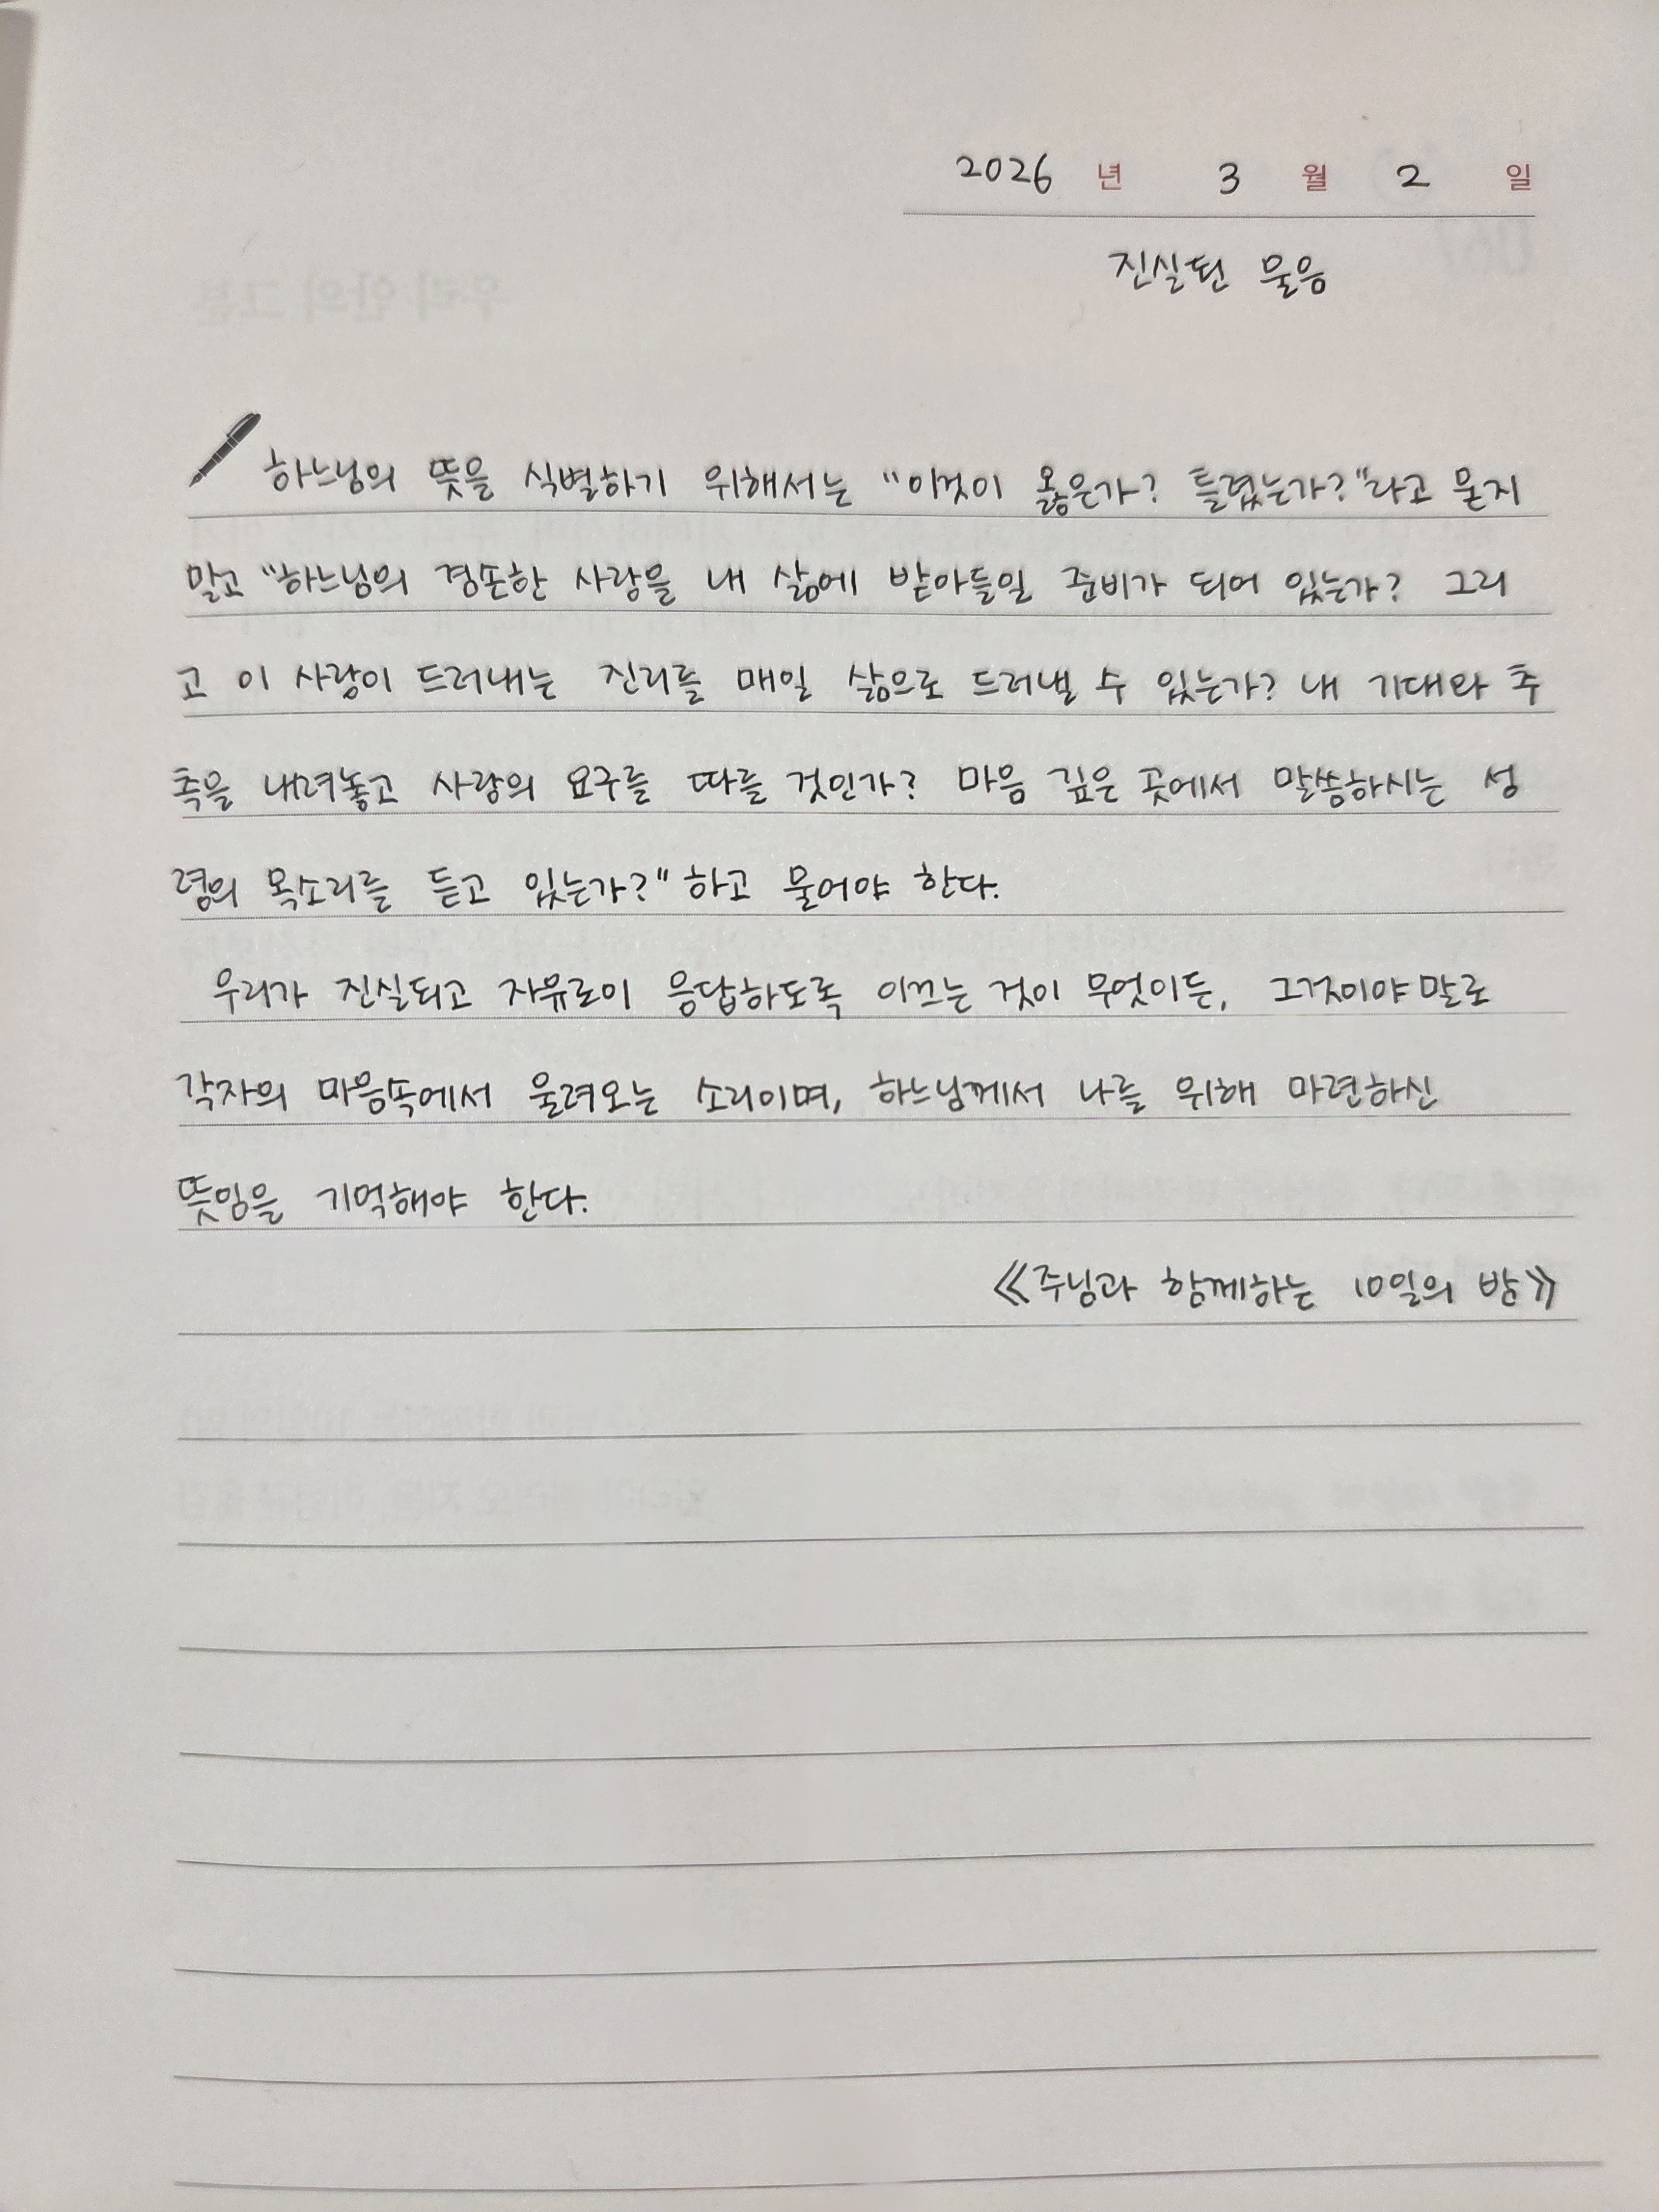 2026 년 3 월 2 일
진실된 물음
하느님의 뜻을 식별하기 위해서는 "이것이 옳은가? 틀렸는가?"라고 묻지
말고 "하느님의 겸손한 사랑을 내 삶에 받아들일 준비가 되어 있는가? 그리
고 이 사랑이 드러내는 진리를 매일 삶으로 드러낼 수 있는가? 내 기대와 추
측을 내려놓고 사랑의 요구를 따를 것인가? 마음 깊은 곳에서 말씀하시는 성
령의 목소리를 듣고 있는가?" 하고 물어야 한다.
우리가 진실되고 자유로이 응답하도록 이끄는 것이 무엇이든, 그것이야말로
각자의 마음속에서 울려오는 소리이며, 하느님께서 나를 위해 마련하신
뜻임을 기억해야 한다.
《주님과 함께하는 10일의 밤》